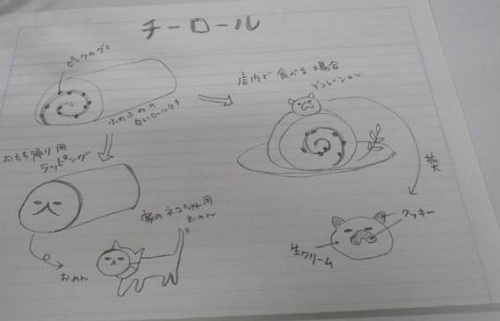 チーロール
ピンクのグミ
ふわふわの
白いロールケーキ
店内で食べる場合
デコレーション
おもち帰り用
ラッピング
家のネコちゃん用
おめん
おめん
拡大
クッキー
生クリーム